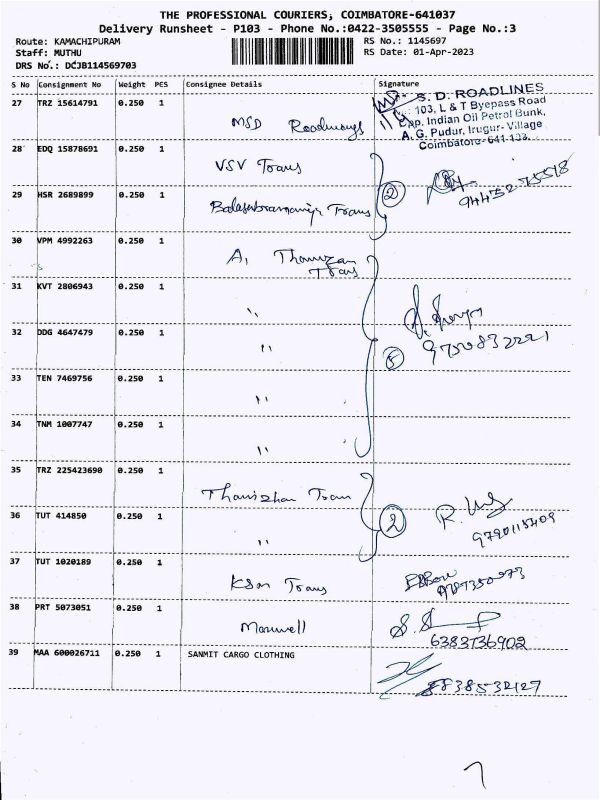 THE PROFESSIONAL COURIERS, COIMBATORE-641037
Delivery Runsheet - P103 - Phone No.:0422-3505555 - Page No.:3
Route: KAMACHIPURAM
RS No.: 1145697
Staff: MUTHU
RS Date: 01-Apr-2023
DRS No.: DCJB114569703
S No Consignment No Weight PCS Consignee Details Signature
27 TRZ 15614791 0.250 1 MSD Roadways
S. D. ROADLINES
103, L & T Byepass Road
Opp. Indian Oil Petrol Bunk,
A. G. Pudur, Irugur- Village
Coimbatore-641 103.
28 EDQ 15878691 0.250 1 VSV Trans
29 HSR 2689899 0.250 1 Balasubramaniya Trans
2
30 VPM 4992263 0.250 1 A, Thamizan
Trans
31 KVT 2806943 0.250 1 "
32 DDG 4647479 0.250 1 "
5
9750832221
33 TEN 7469756 0.250 1 "
34 TNM 1007747 0.250 1 "
35 TRZ 225423690 0.250 1 Thamizhan Tran
36 TUT 414850 0.250 1 "
2
9790115409
37 TUT 1020189 0.250 1 KSM Trans
38 PRT 5073051 0.250 1 Maxwell
6383736902
39 MAA 600026711 0.250 1 SANMIT CARGO CLOTHING
8838532127
7